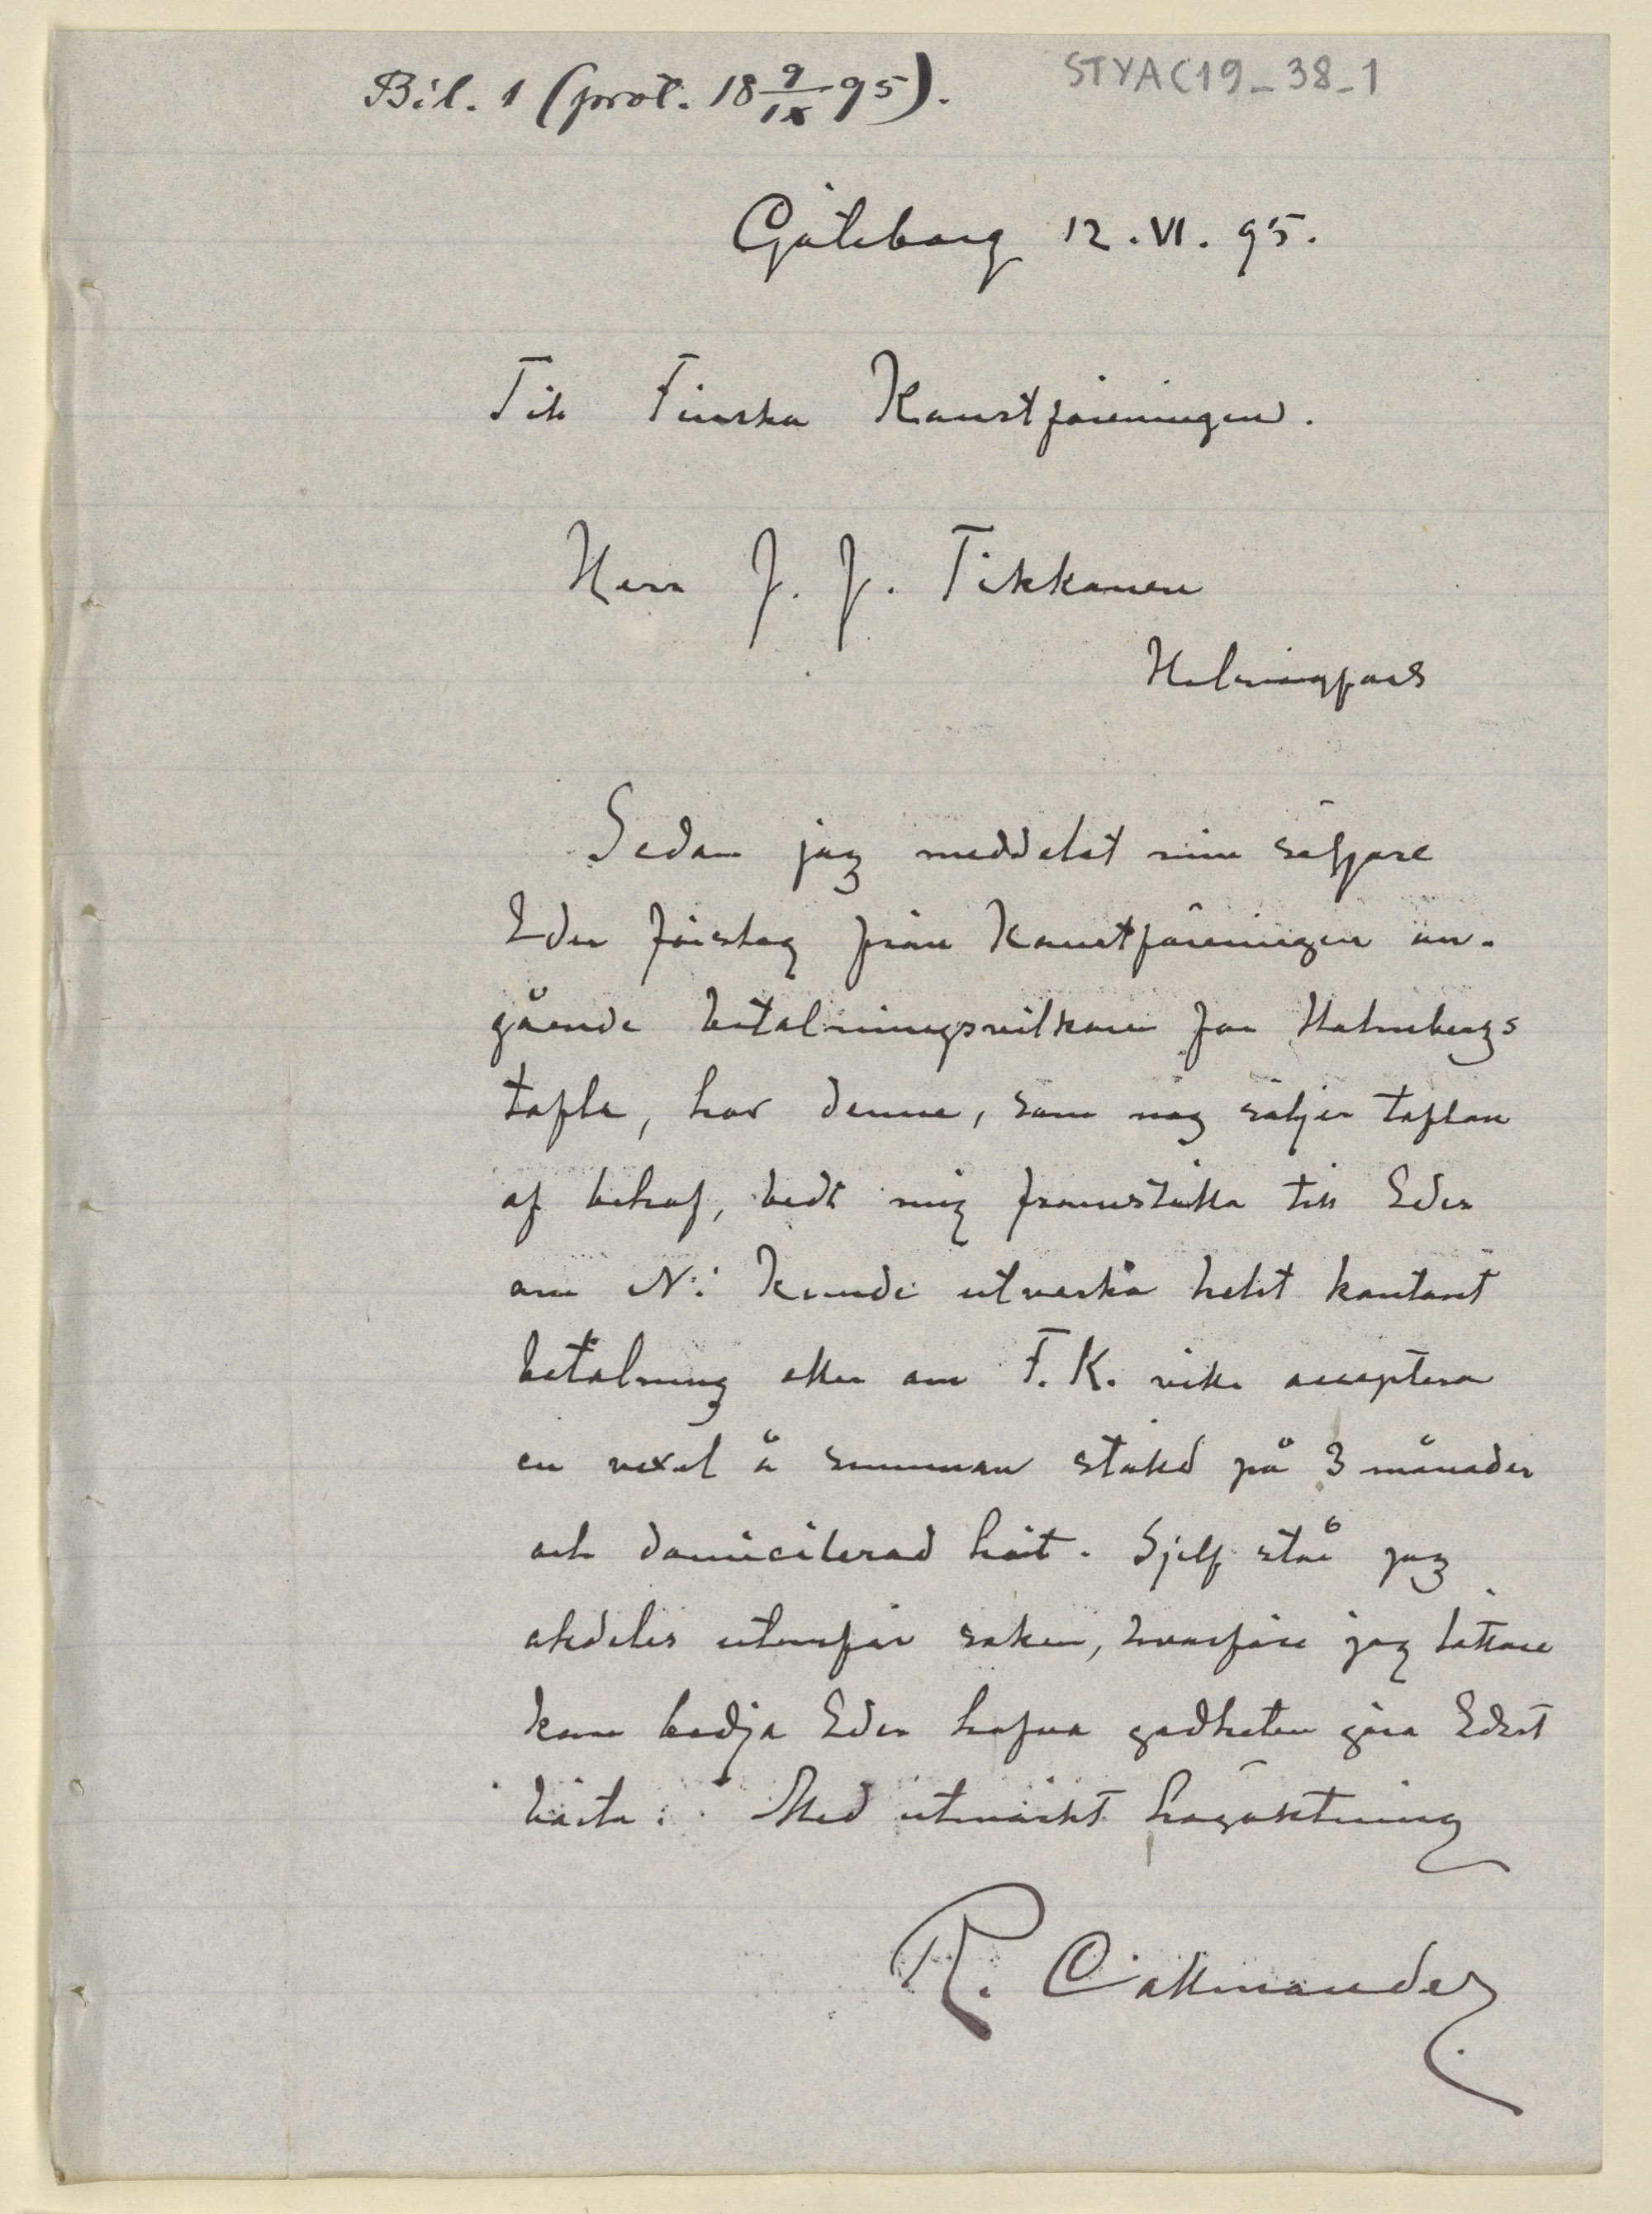 Bil. 1 (prot. 18 9/IX 95).
STYAC19_38_1
Göteborg 12.VI.95.
Till Finska Konstföreningen.
Herr J. J. Tikkanen
Helsingfors
Sedan jag meddelat min säljare
Eder förslag från Konstföreningen an-
gående betalningsvilkoren för Holmbergs
tafla, har denne, som nog säljer taflan
af behof, bedt mig framställa till Eder
om Ni kunde utverka helst kontant
betalning eller om F. K. ville acceptera
en vexel å summan stäld på 3 månader
och domicilerad hit. Sjelf står jag
alldeles utanför saken, hvarföre jag lättare
kan bedja Eder hafva godheten göra Edert
bästa. Med utmärkt högaktning
R. Callmander